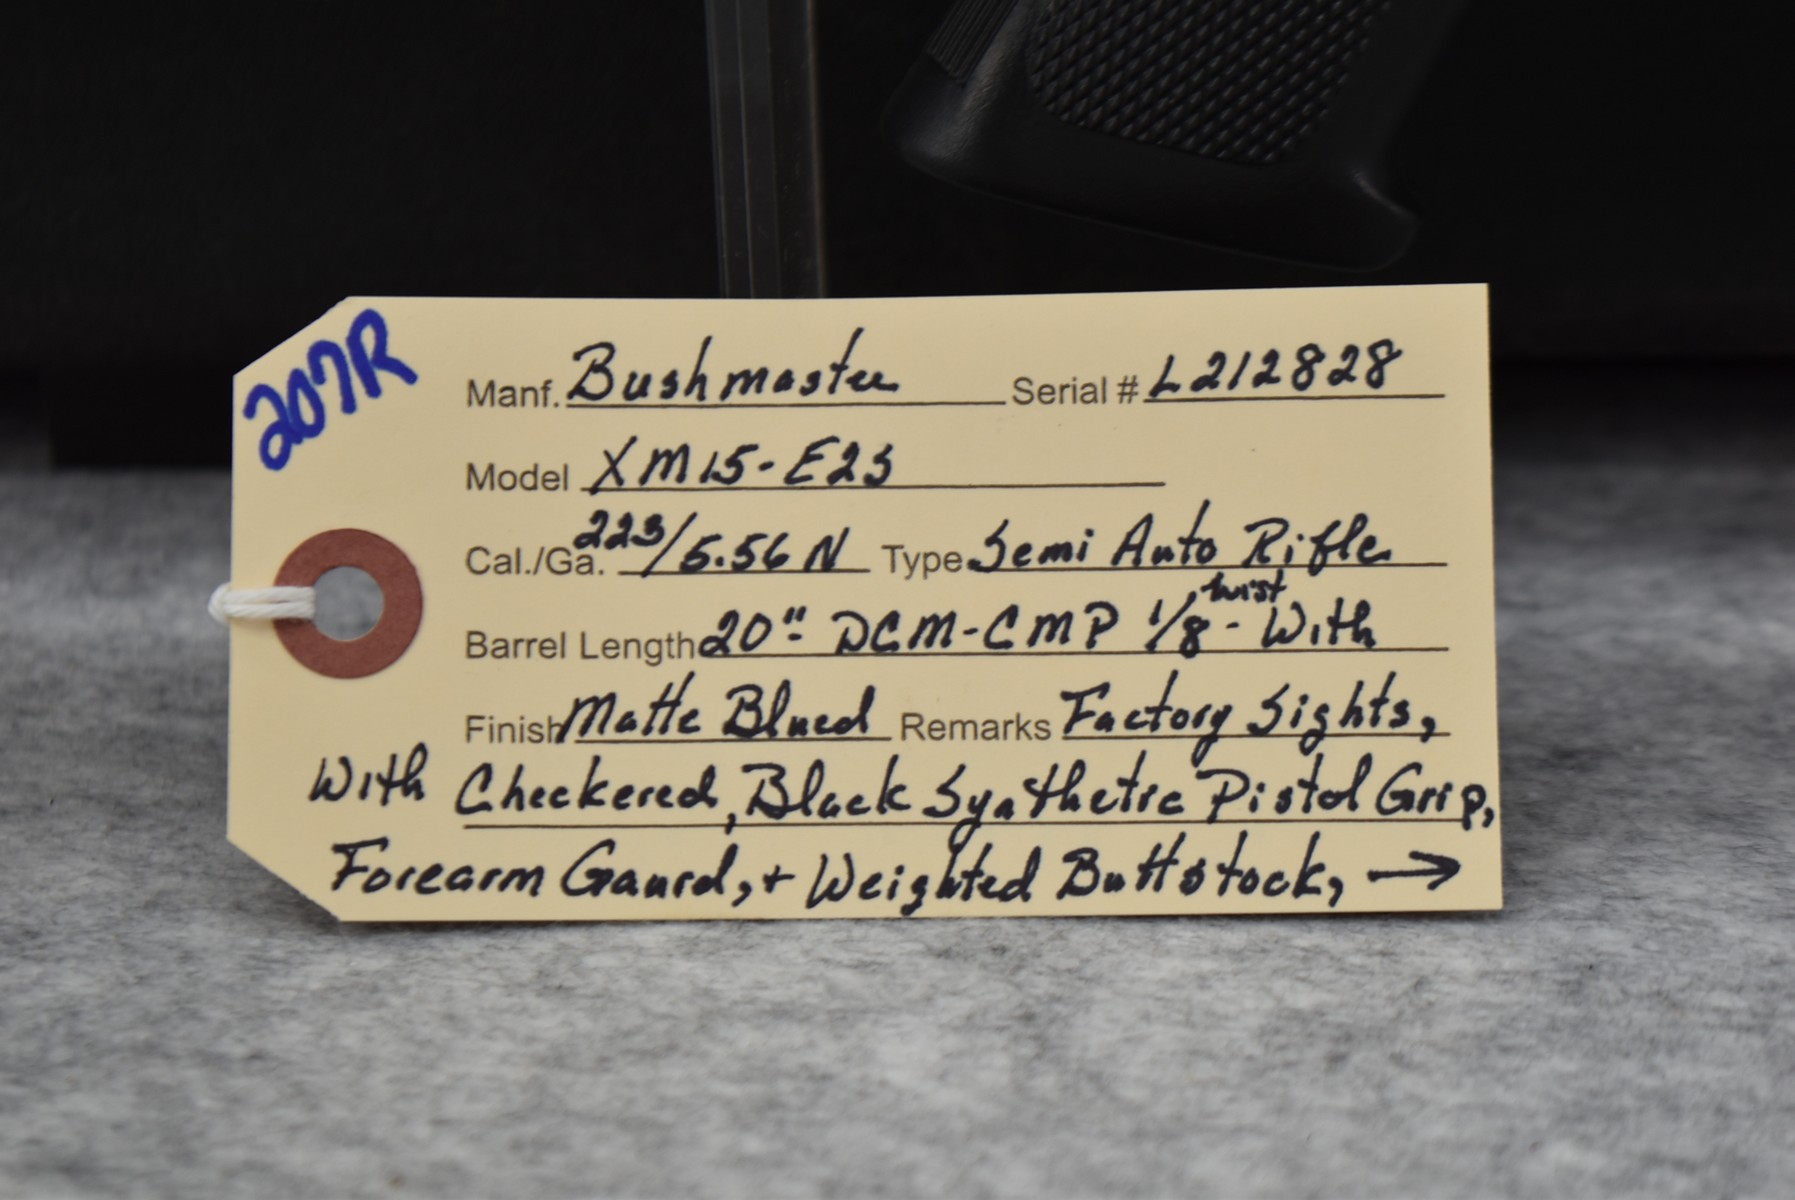 207R
Manf. Bushmaster Serial # L212828
Model XM15-E2S
Cal./Ga. 223/5.56 N Type Semi Auto Rifle
Barrel Length 20" - DCM-CMP 1/8 twist - With
Finish Matte Blued Remarks Factory Sights,
With Checkered, Black Synthetic Pistol Grip,
Forearm Gaurd, + Weighted Buttstock, →